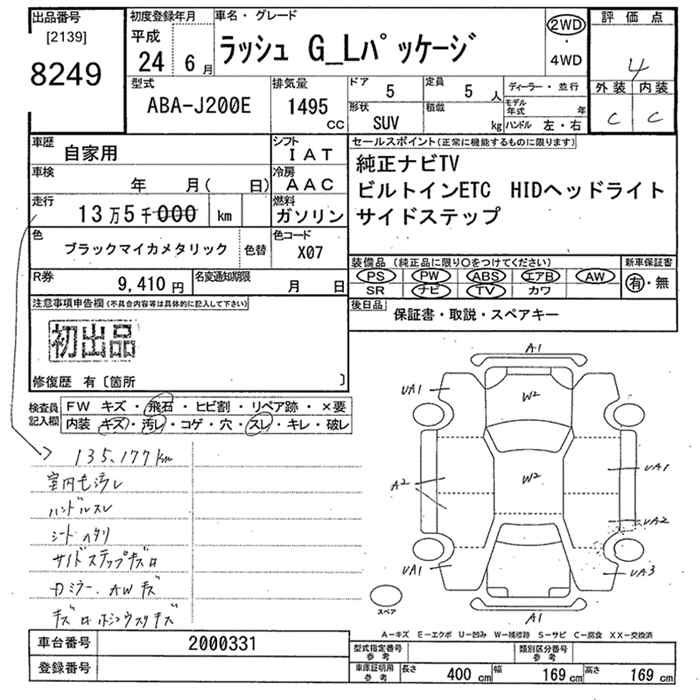 出品番号
[2139]
8249
初度登録年月
平成
24 6月
車名・グレード
ラッシュ G_Lパッケージ
2WD
・
4WD
評価点
4
外装 内装
C C
型式
ABA-J200E
排気量
1495
CC
ドア
5
定員
5 人
形状
SUV
積載
kg
ディーラー・並行
モデル年式 年
ハンドル 左・右
車歴
自家用
シフト
IAT
車検
年 月( 日)
冷房
AAC
走行
13万5千000 km
燃料
ガソリン
色
ブラックマイカメタリック
色替
色コード
X07
R券
9,410円
名変通知期限
月 日
セールスポイント(正常に機能するものに限ります)
純正ナビTV
ビルトインETC HIDヘッドライト
サイドステップ
装備品 (純正品に限り〇をつけてください)
PS PW ABS エアB AW
SR ナビ TV カワ
新車保証書
有・無
後日品
保証書・取説・スペアキー
注意事項申告欄(不具合内容等は具体的に記入して下さい)
初出品
修復歴 有〔箇所 〕
検査員記入欄
FW キズ・飛石・ヒビ割・リペア跡・×要
内装 キズ・汚レ・コゲ・穴・スレ・キレ・破レ
135,177km
室内も汚レ
ハンドルスレ
シートヘタリ
サイドステップキズロ
カミラー、AWキズ
A1
UA1
W2
W2
UA1
A2
UA2
UA1
UA3
A1
スペア
A－キズ E－エクボ U－凹み W－補修跡 S－サビ C－腐食 XX－交換済
車台番号
2000331
登録番号
型式指定番号
参考
類別区分番号
参考
車庫証明用
参考
長さ 400 cm 幅 169 cm 高さ 169 cm